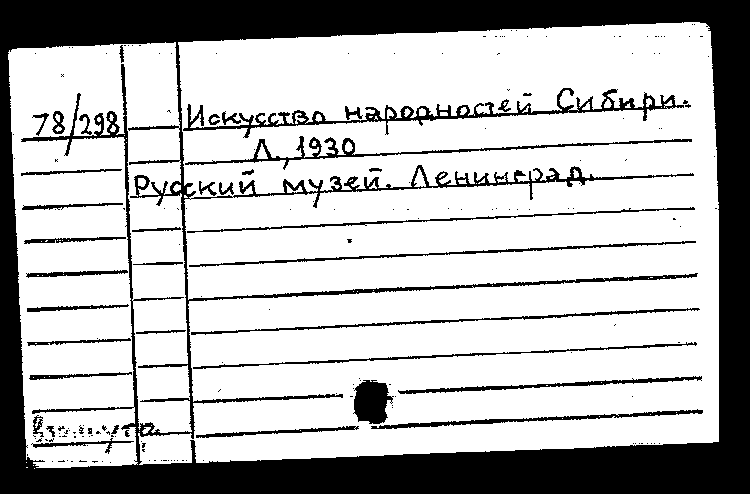 78/298 Искусство народностей Сибири.
Л., 1930
Русский музей. Ленинград.